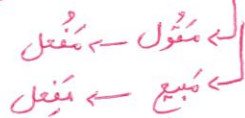 مَقُول ← مَفْعُل
مَبِيع ← مَفِعل